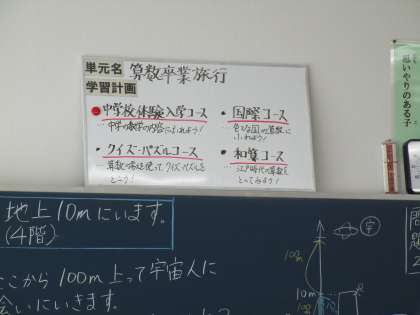 単元名 算数卒業旅行
学習計画
中学校体験入学コース
中学の数学の内容にふれよう！
・クイズ・パズルコース
算数を使って、クイズ・パズルを
とこう！
・国際コース
色々な国の算数に
ふれよう！
・和算コース
江戸時代の算数を
とってみよう！
思いやりのある子
地上10mにいます。
(4階)
ここから100m上って宇宙人に
会いにいきます。
宇
100m
10m
問
題
2